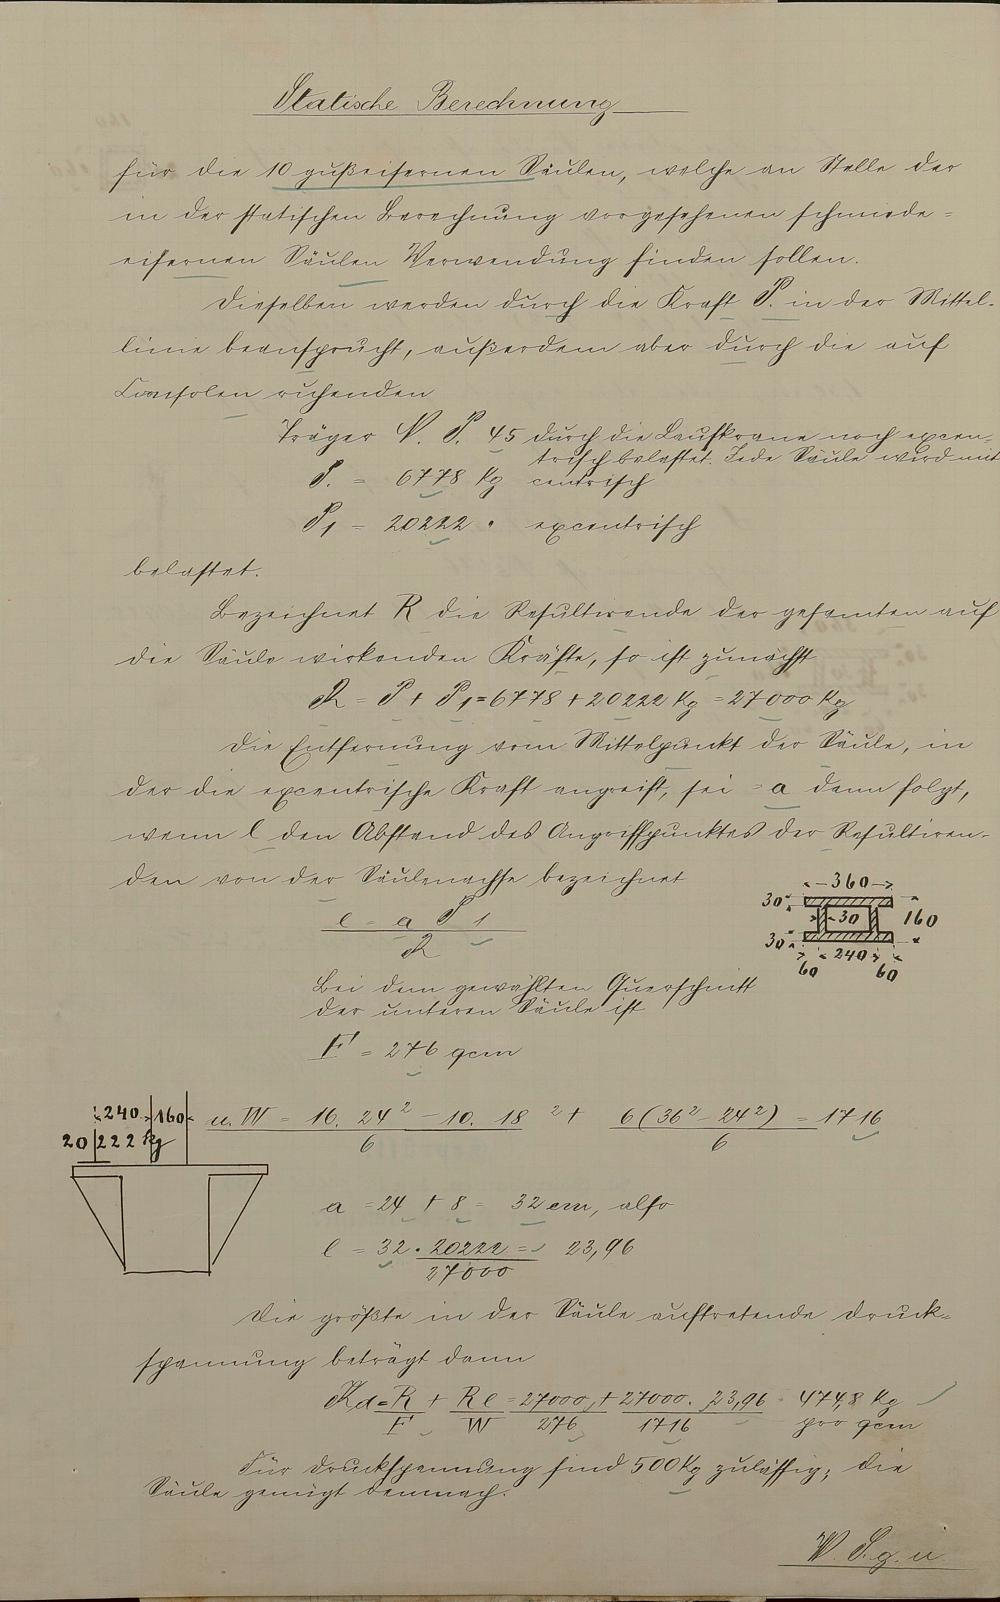 Statische Berechnung
für die 10 gußeisernen Säulen, welche an Stelle der
in der statischen Berechnung vorgesehenen schmiede-
eisernen Säulen Verwendung finden sollen.
Dieselben werden durch die Kraft P. in der Mittel-
linie beansprucht, außerdem aber durch die auf
Consolen ruhenden
Träger N. P. 45 durch die Laufkrane noch excen-
trisch belastet. Jede Säule wird mit
P. = 6778 Kg centrisch
P1 = 20222 " excentrisch
belastet.
Bezeichnet R die Resultirende der gesamten auf
die Säule wirkenden Kräfte, so ist zunächst
R = P + P1 = 6778 + 20222 Kg = 27000 Kg
Die Entfernung vom Mittelpunkt der Säule, in
der die excentrische Kraft angreift, sei = a dann folgt,
wenn l den Abstand des Angriffspunktes der Resultiren-
den von der Säulenachse bezeichnet
l = a P1
R
360
30
30
160
30
240
60
60
Bei dem gewählten Querschnitt
der unteren Säule ist
F = 276 qcm
240 160
20222 kg
u. W = 16. 24² - 10. 18² + 6(36² - 24²) = 1716
6 6
a = 24 + 8 = 32 cm, also
l = 32 · 20222 = 23,96
27000
Die größte in der Säule auftretende Druck-
spannung beträgt dann
Kd = R + Rl = 27000 + 27000. 23,96 = 474,8 Kg
F W 276 1716 pro qcm
Für Druckspannung sind 500 Kg zulässig; die
Säule genügt demnach.